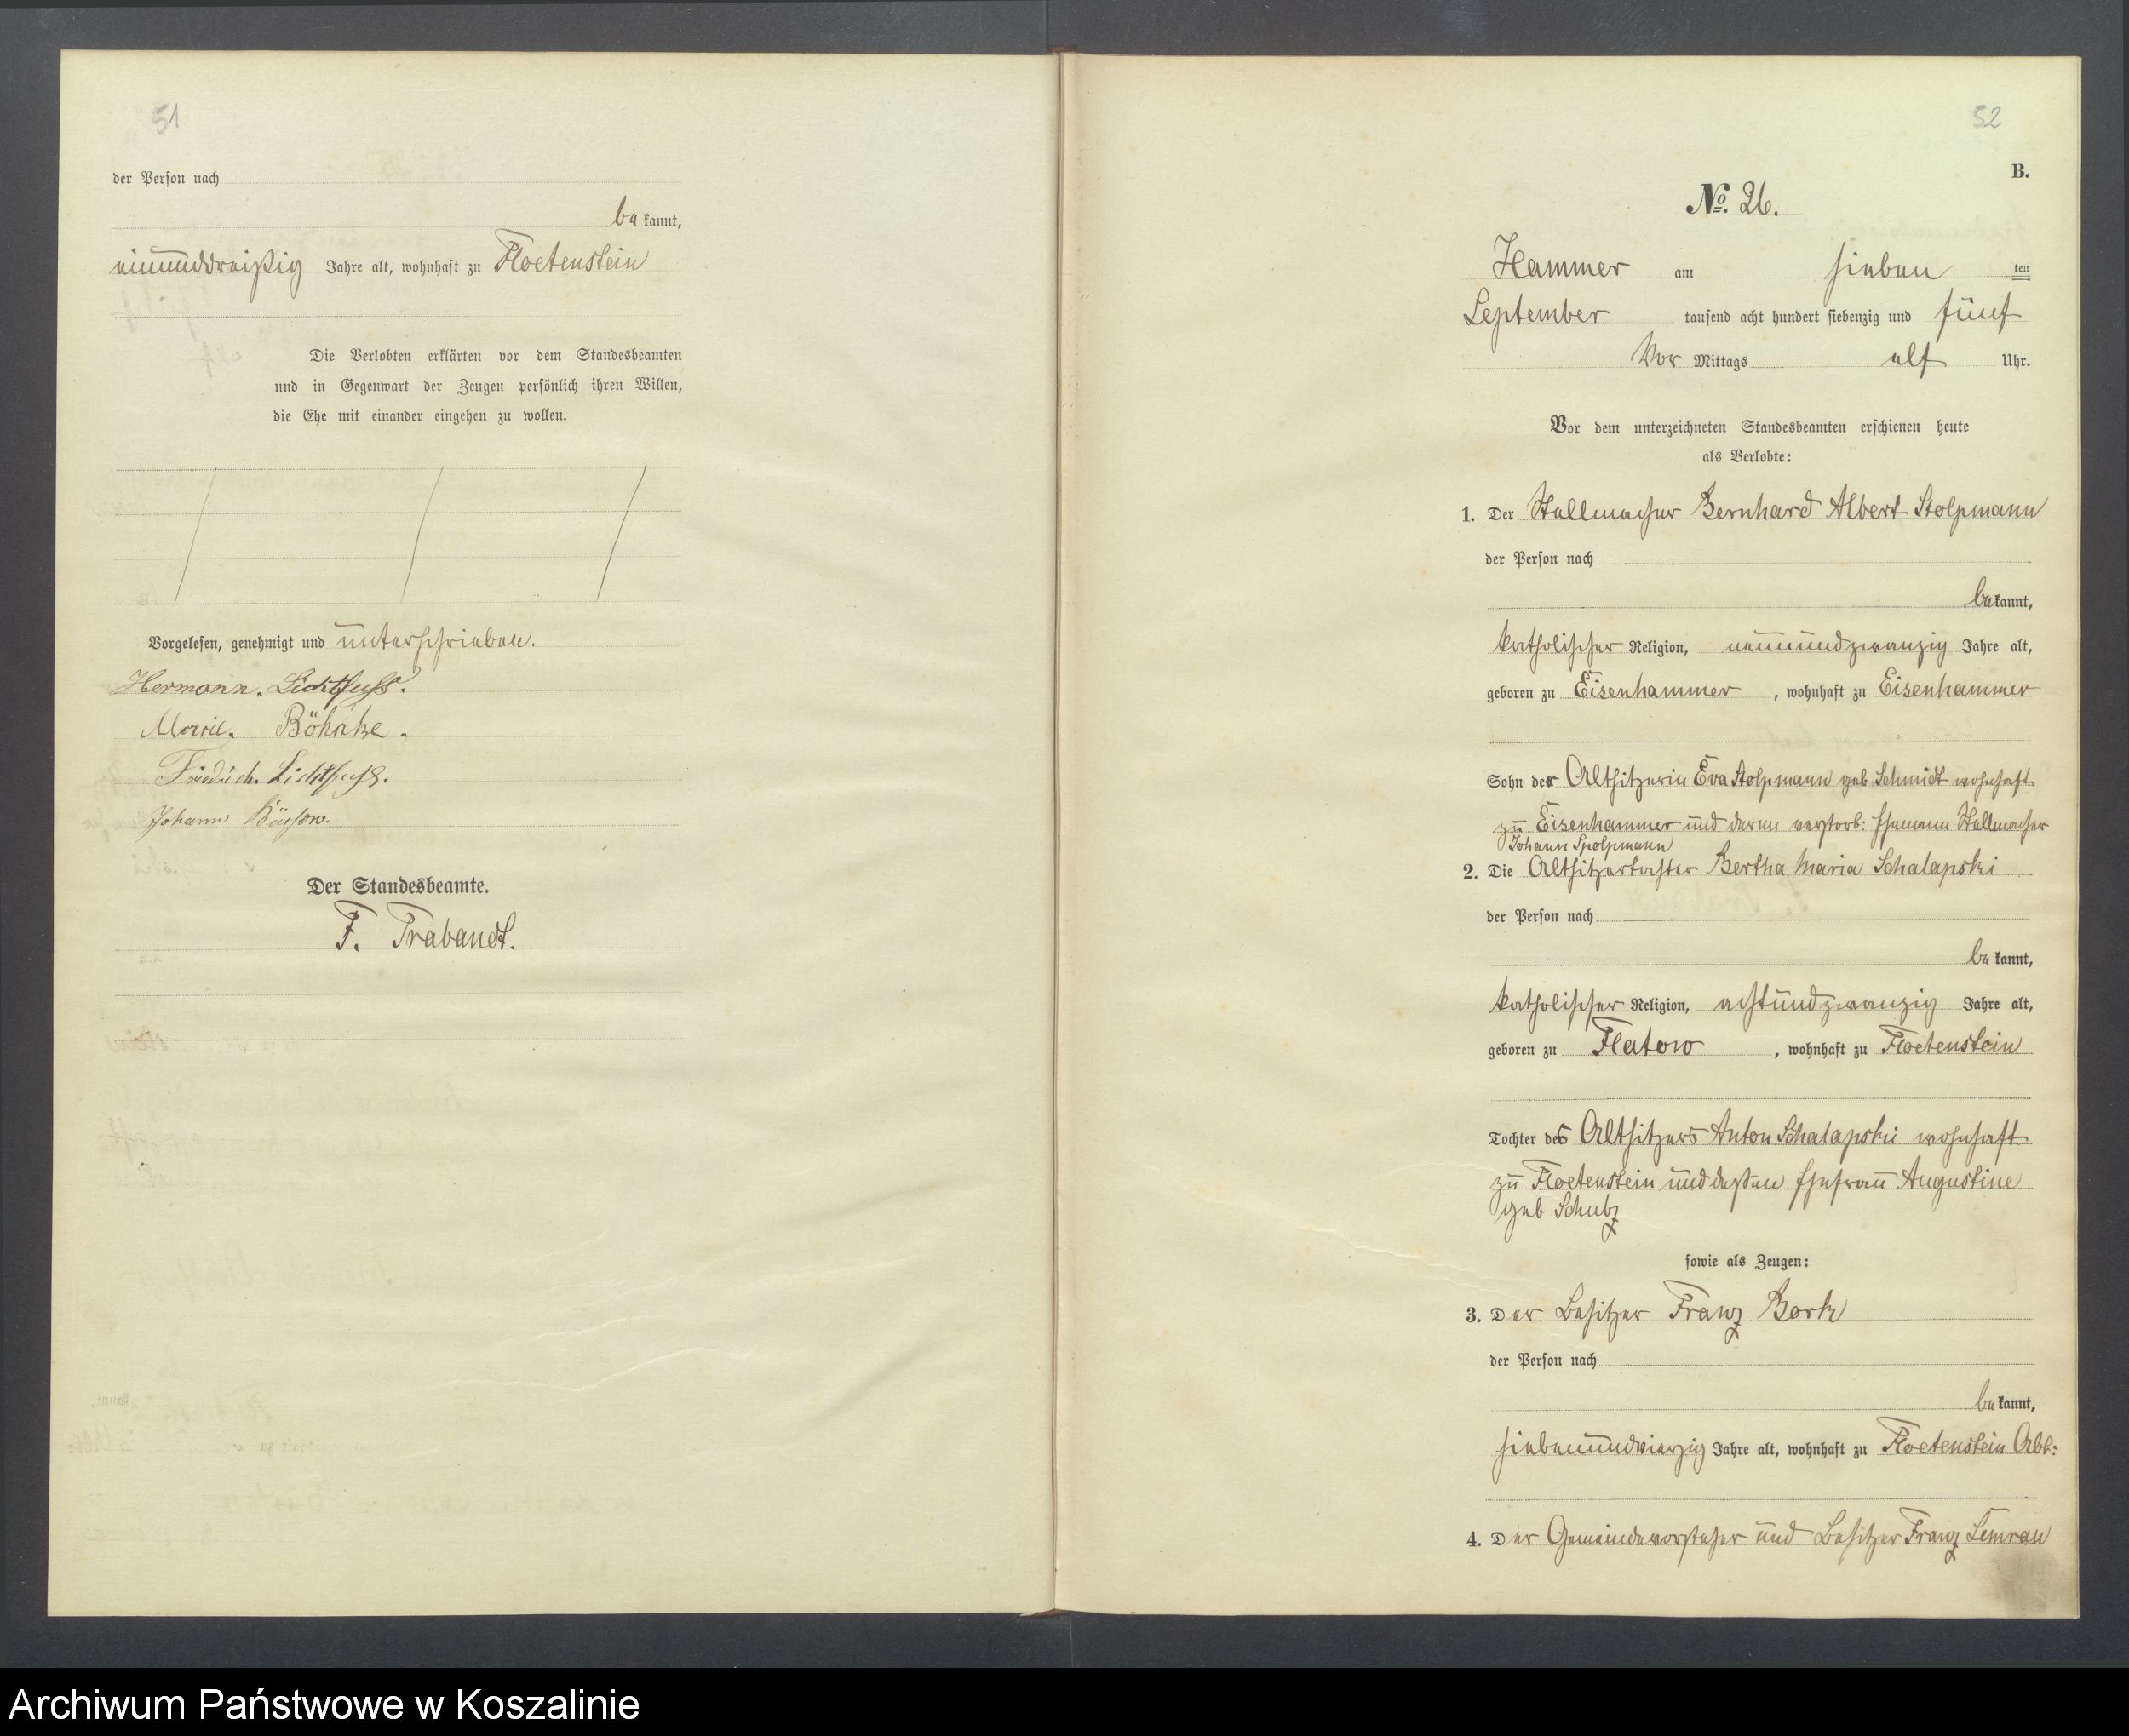 51
der Person nach
be kannt,
einunddreißig Jahre alt, wohnhaft zu Floetenstein
Die Verlobten erklärten vor dem Standesbeamten
und in Gegenwart der Zeugen persönlich ihren Willen,
die Ehe mit einander eingehen zu wollen.
Vorgelesen, genehmigt und unterschrieben.
Hermann. Lichtfuss.
Marie. Böhnke.
Friedrich. Lichtfuß.
Johann Büssow.
Der Standesbeamte.
F. Trabandt.
52
B.
No. 26.
Hammer am sieben ten
September tausend acht hundert siebenzig und fünf
Vor Mittags elf Uhr.
Vor dem unterzeichneten Standesbeamten erschienen heute
als Verlobte:
1. Der Stellmacher Bernhard Albert Stolpmann
der Person nach
bekannt,
katholischer Religion, neunundzwanzig Jahre alt,
geboren zu Eisenhammer, wohnhaft zu Eisenhammer
Sohn der Altsitzerin Eva Stolpmann geb Schmidt wohnhaft
zu Eisenhammer und deren verstorb: Ehemann Stellmacher
Johann Stolpmann
2. Die Altsitzertochter Bertha Maria Schalapski
der Person nach
be kannt,
katholischer Religion, achtundzwanzig Jahre alt,
geboren zu Flatow, wohnhaft zu Floetenstein
Tochter des Altsitzers Anton Schalapski wohnhaft
zu Floetenstein und dessen Ehefrau Augustine
geb Schulz
sowie als Zeugen:
3. Der Besitzer Franz Bork
der Person nach
be kannt,
siebenundvierzig Jahre alt, wohnhaft zu Floetenstein Abb:
4. Der Gemeindevorsteher und Besitzer Franz Semrau
Archiwum Państwowe w Koszalinie